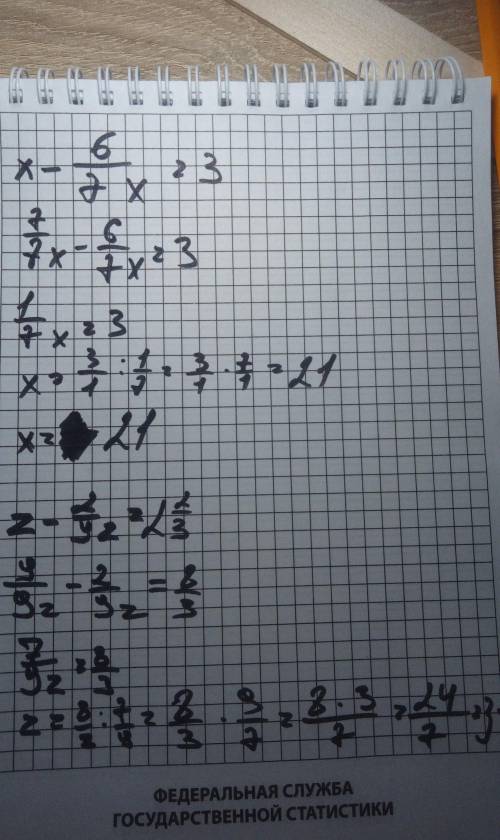 x - 6/7 x = 3
7/7 x - 6/7 x = 3
1/7 x = 3
x = 3/1 : 1/7 = 3/1 · 7/1 = 21
x = 21
z - 2/9 z = 2 2/3
9/9 z - 2/9 z = 8/3
7/9 z = 8/3
z = 8/3 : 7/9 = 8/3 · 9/7 = 8·3/7 = 24/7 = 3
ФЕДЕРАЛЬНАЯ СЛУЖБА
ГОСУДАРСТВЕННОЙ СТАТИСТИКИ